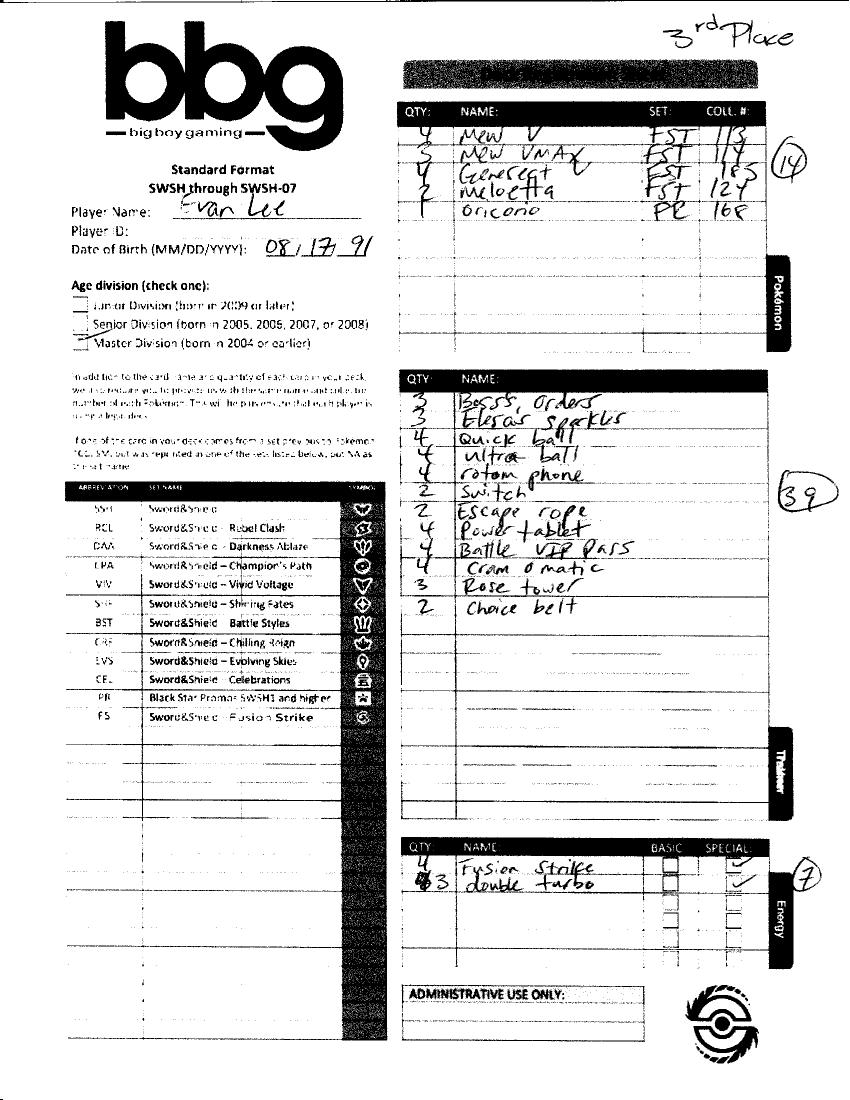 3rd Place
bbg
big boy gaming
Standard Format
SWSH through SWSH-07
Player Name: Evan Lee
Player ID:
Date of Birth (MM/DD/YYYY): 08/17/91
Age division (check one):
Junior Division (born in 2009 or later)
Senior Division (born in 2005, 2006, 2007, or 2008)
Master Division (born in 2004 or earlier)
In addition to the card name and quantity of each card in your deck,
we also require you to provide us with the same name and collector
number of each Pokémon. This will help us ensure that each player is
using a legal deck.
If one of the card in your deck comes from a set previous to Pokemon
TCG: SM, but was reprinted in one of the sets listed below, put NA as
the set name
ABBREVIATION SET NAME SYMBOL
SSH Sword&Shield
RCL Sword&Shield - Rebel Clash
DAA Sword&Shield - Darkness Ablaze
CPA Sword&Shield – Champion's Path
VIV Sword&Shield – Vivid Voltage
SHF Sword&Shield – Shining Fates
BST Sword&Shield Battle Styles
CRE Sword&Shield – Chilling Reign
EVS Sword&Shield – Evolving Skies
CEL Sword&Shield - Celebrations
PR Black Star Promos SWSH1 and higher
FS Sword&Shield - Fusion Strike
QTY: NAME: SET: COLL. #:
4 Mew V FST 113
3 Mew VMAX FST 114
4 Genesect V FST 185
2 Meloetta FST 124
1 oricorio PR 168
14
Pokémon
QTY: NAME:
3 Boss's, orders
3 Elesa's sparkles
4 Quick ball
4 ultra ball
4 rotom phone
2 Switch
2 Escape rope
4 Power tablet
4 Battle VIP Pass
4 Cram o matic
3 Rose tower
2 Choice belt
39
Trainer
QTY NAME: BASIC SPECIAL:
4 Fusion Strike
3 double turbo
7
Energy
ADMINISTRATIVE USE ONLY: